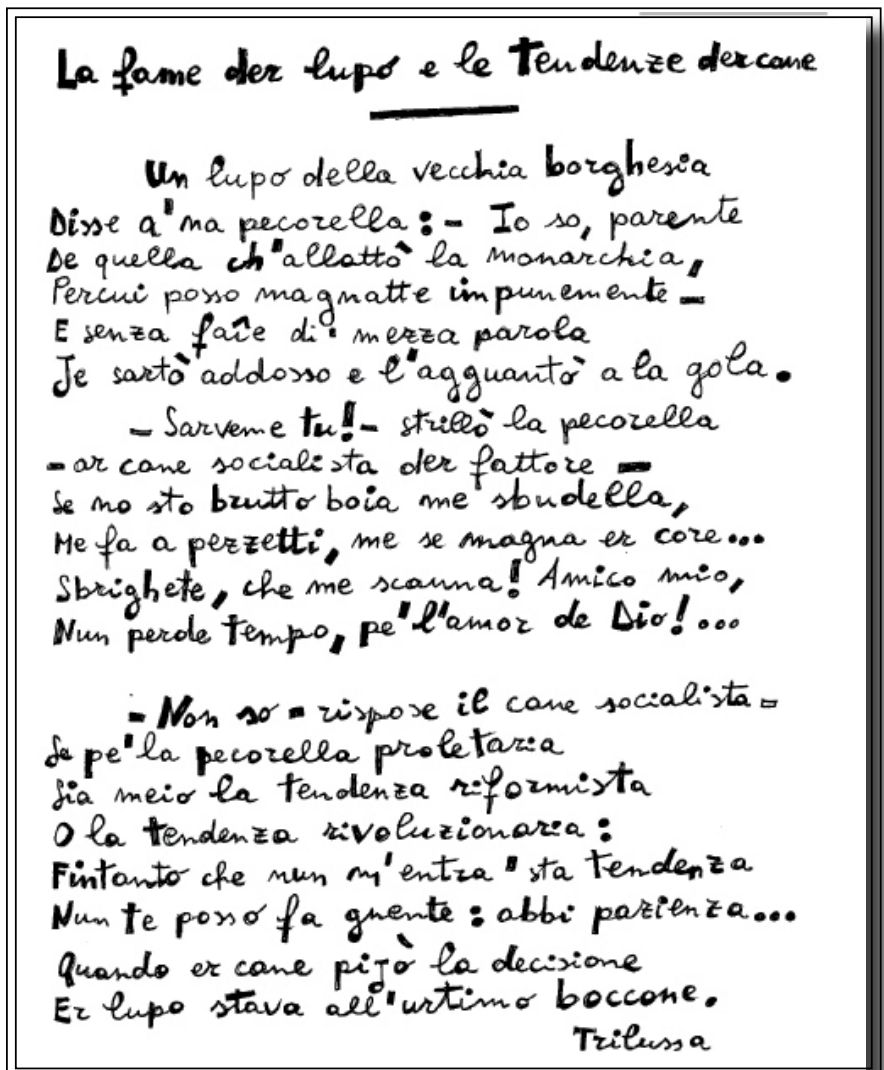 La fame der lupo e le Tendenze der cane
Un lupo della vecchia borghesia
Disse a 'na pecorella: - Io so, parente
De quella ch'allattò la monarchia,
Percui posso magnatte impunemente -
E senza faie di' mezza parola
Je sartò addosso e l'agguantò a la gola.
- Sarveme tu! - strillò la pecorella
- ar cane socialista der fattore -
Se no sto brutto boia me sbudella,
Me fa a pezzetti, me se magna er core...
Sbrighete, che me scanna! Amico mio,
Nun perde tempo, pe' l'amor de Dio!...
- Non so - rispose il cane socialista -
Se pe' la pecorella proletaria
Sia meio la tendenza riformista
O la tendenza rivoluzionaria:
Fintanto che nun m'entra 'sta tendenza
Nun te posso fa gnente: abbi pazienza...
Quando er cane pijò la decisione
Er lupo stava all'urtimo boccone.
Trilussa